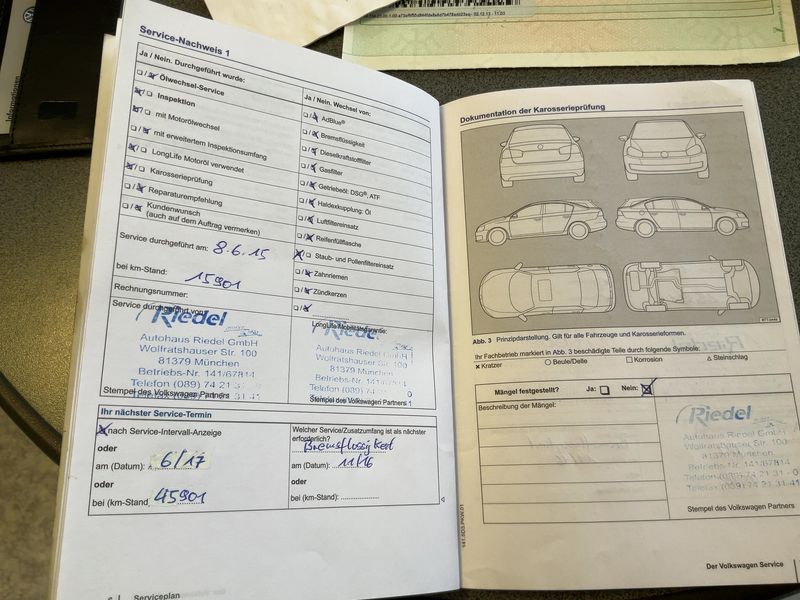 Informationen
02.12.13 - 11:03
Service-Nachweis 1
Ja / Nein. Durchgeführt wurde:
Ölwechsel-Service
Inspektion
mit Motorölwechsel
mit erweitertem Inspektionsumfang
LongLife Motoröl verwendet
Karosserieprüfung
Reparaturempfehlung
Kundenwunsch
(auch auf dem Auftrag vermerken)
Service durchgeführt am: 8.6.15
bei km-Stand: 15901
Rechnungsnummer:
Service durchgeführt von:
Riedel
Autohaus Riedel GmbH
Wolfratshauser Str. 100
81379 München
Betriebs-Nr. 141/67814
Telefon (089) 74 21 3
Stempel des Volkswagen Partners
Ja / Nein. Wechsel von:
AdBlue®
Bremsflüssigkeit
Dieselkraftstofffilter
Gasfilter
Getriebeöl: DSG®, ATF
Haldexkupplung: Öl
Luftfiltereinsatz
Reifenfüllflasche
Staub- und Pollenfiltereinsatz
Zahnriemen
Zündkerzen
LongLife-Mobilitätsgarantie:
Riedel
Autohaus Riedel GmbH
Wolfratshauser Str. 100
81379 München
Betriebs-Nr. 141/67814
Telefon (089) 74 21
Stempel des Volkswagen Partners
Ihr nächster Service-Termin
nach Service-Intervall-Anzeige
oder
am (Datum): 6/17
oder
bei (km-Stand) 45901
Welcher Service/Zusatzumfang ist als nächster
erforderlich?
Bremsflüssigkeit
am (Datum): 11/16
oder
bei (km-Stand):
Serviceplan
Dokumentation der Karosserieprüfung
Abb. 3 Prinzipdarstellung. Gilt für alle Fahrzeuge und Karosserieformen.
Ihr Fachbetrieb markiert in Abb. 3 beschädigte Teile durch folgende Symbole:
x Kratzer ○ Beule/Delle □ Korrosion △ Steinschlag
Mängel festgestellt? Ja: Nein:
Beschreibung der Mängel:
Riedel
Autohaus Riedel GmbH
Wolfratshauser Str. 100
81379 München
Betriebs-Nr. 141/67814
Telefon (089) 74 21 31 - 0
Telefax (089) 74 21 31-41
Stempel des Volkswagen Partners
Der Volkswagen Service